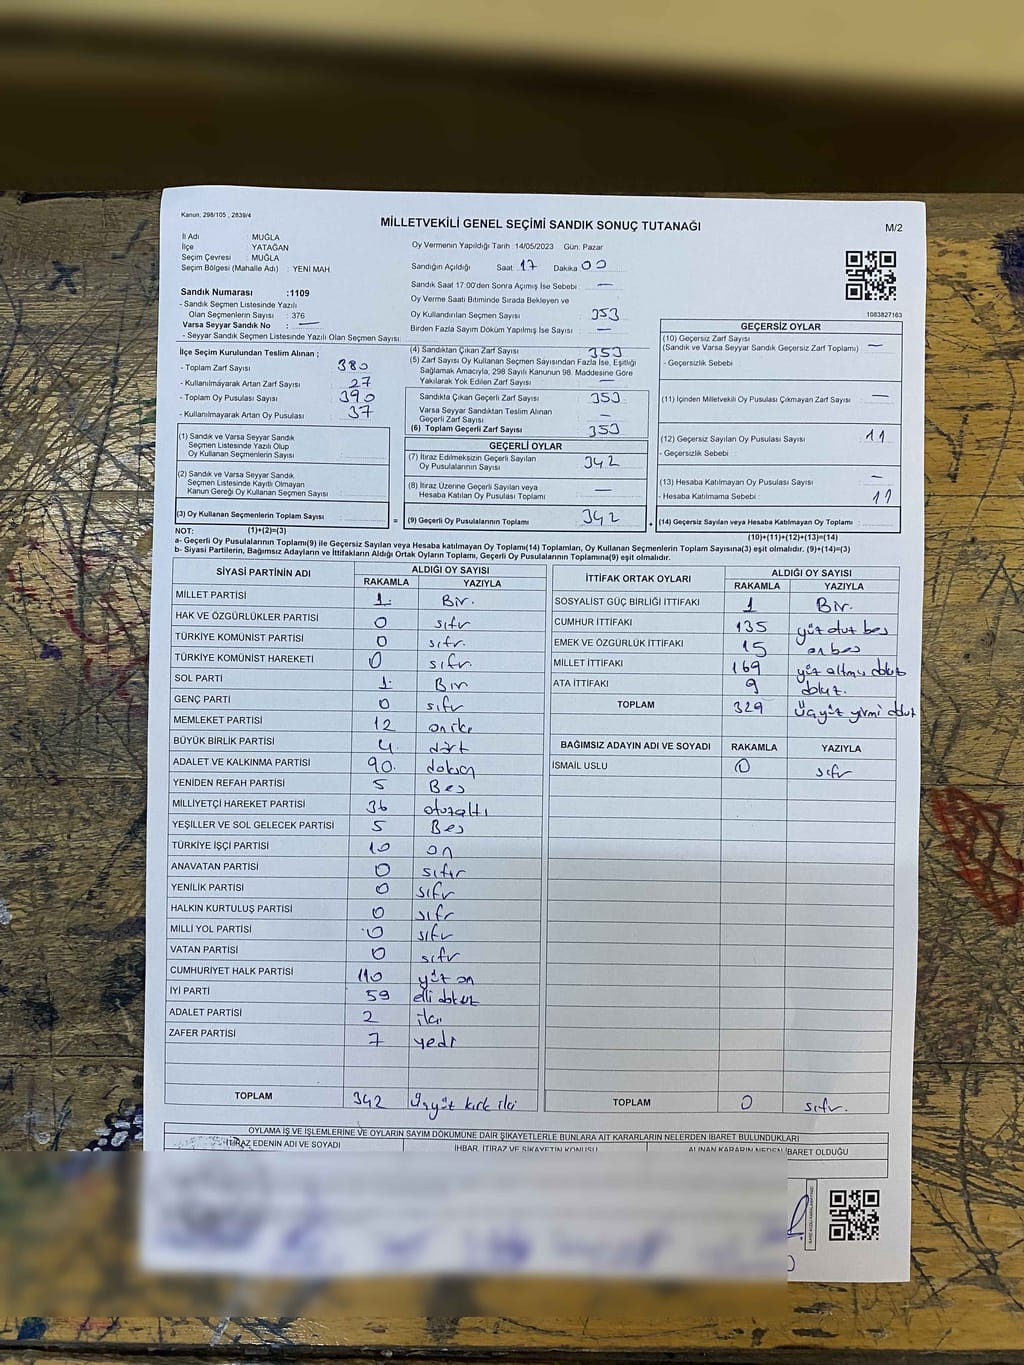 Kanun: 298/105 , 2839/4
MİLLETVEKİLİ GENEL SEÇİMİ SANDIK SONUÇ TUTANAĞI
M/2
İl Adı : MUĞLA
İlçe : YATAĞAN
Seçim Çevresi : MUĞLA
Seçim Bölgesi (Mahalle Adı) : YENİ MAH
Sandık Numarası :1109
- Sandık Seçmen Listesinde Yazılı
Olan Seçmenlerin Sayısı : 376
Varsa Seyyar Sandık No : —
- Seyyar Sandık Seçmen Listesinde Yazılı Olan Seçmen Sayısı:
Oy Vermenin Yapıldığı Tarih :14/05/2023 Gün: Pazar
Sandığın Açıldığı Saat: 17 Dakika 00
Sandık Saat 17:00'den Sonra Açımış İse Sebebi : —
Oy Verme Saati Bitiminde Sırada Bekleyen ve
Oy Kullandırılan Seçmen Sayısı : 353
Birden Fazla Sayım Döküm Yapılmış İse Sayısı : —
1083827163
İlçe Seçim Kurulundan Teslim Alınan ;
- Toplam Zarf Sayısı : 380
- Kullanılmayarak Artan Zarf Sayısı : 27
- Toplam Oy Pusulası Sayısı : 390
- Kullanılmayarak Artan Oy Pusulası : 37
(1) Sandık ve Varsa Seyyar Sandık
Seçmen Listesinde Yazılı Olup
Oy Kullanan Seçmenlerin Sayısı :
(2) Sandık ve Varsa Seyyar Sandık
Seçmen Listesinde Kayıtlı Olmayan
Kanun Gereği Oy Kullanan Seçmen Sayısı :
(3) Oy Kullanan Seçmenlerin Toplam Sayısı :
(4) Sandıktan Çıkan Zarf Sayısı : 353
(5) Zarf Sayısı Oy Kullanan Seçmen Sayısından Fazla İse, Eşitliği
Sağlamak Amacıyla, 298 Sayılı Kanunun 98. Maddesine Göre
Yakılarak Yok Edilen Zarf Sayısı : —
Sandıkta Çıkan Geçerli Zarf Sayısı : 353
Varsa Seyyar Sandıktan Teslim Alınan
Geçerli Zarf Sayısı : —
(6) Toplam Geçerli Zarf Sayısı : 353
GEÇERLİ OYLAR
(7) İtiraz Edilmeksizin Geçerli Sayılan
Oy Pusulalarının Sayısı : 342
(8) İtiraz Üzerine Geçerli Sayılan veya
Hesaba Katılan Oy Pusulası Toplamı : —
= (9) Geçerli Oy Pusulalarının Toplamı : 342 +
GEÇERSİZ OYLAR
(10) Geçersiz Zarf Sayısı
(Sandık ve Varsa Seyyar Sandık Geçersiz Zarf Toplamı) : —
- Geçersizlik Sebebi :
(11) İçinden Milletvekili Oy Pusulası Çıkmayan Zarf Sayısı : —
(12) Geçersiz Sayılan Oy Pusulası Sayısı : 11
- Geçersizlik Sebebi :
(13) Hesaba Katılmayan Oy Pusulası Sayısı : —
- Hesaba Katılmama Sebebi : 11
(14) Geçersiz Sayılan veya Hesaba Katılmayan Oy Toplamı :
NOT: (1)+(2)=(3) (10)+(11)+(12)+(13)=(14)
a- Geçerli Oy Pusulalarının Toplamı(9) ile Geçersiz Sayılan veya Hesaba katılmayan Oy Toplam(14) Toplamları, Oy Kullanan Seçmenlerin Toplam Sayısına(3) eşit olmalıdır. (9)+(14)=(3)
b- Siyasi Partilerin, Bağımsız Adayların ve İttifakların Aldığı Ortak Oyların Toplamı, Geçerli Oy Pusulalarının Toplamına(9) eşit olmalıdır.
SİYASİ PARTİNİN ADI ALDIĞI OY SAYISI
RAKAMLA YAZIYLA
MİLLET PARTİSİ 1 Bir.
HAK VE ÖZGÜRLÜKLER PARTİSİ 0 sıfr
TÜRKİYE KOMÜNİST PARTİSİ 0 sıfr.
TÜRKİYE KOMÜNİST HAREKETİ 0 sıfr.
SOL PARTİ 1 Bir
GENÇ PARTİ 0 sıfr
MEMLEKET PARTİSİ 12 oniki
BÜYÜK BİRLİK PARTİSİ 4 dört
ADALET VE KALKINMA PARTİSİ 90 doksan
YENİDEN REFAH PARTİSİ 5 Beş
MİLLİYETÇİ HAREKET PARTİSİ 36 otuzaltı
YEŞİLLER VE SOL GELECEK PARTİSİ 5 Beş
TÜRKİYE İŞÇİ PARTİSİ 10 on
ANAVATAN PARTİSİ 0 sıfır
YENİLİK PARTİSİ 0 sıfr
HALKIN KURTULUŞ PARTİSİ 0 sıfr
MİLLİ YOL PARTİSİ 0 sıfr
VATAN PARTİSİ 0 sıfr
CUMHURİYET HALK PARTİSİ 110 yüz on
İYİ PARTİ 59 elli dokuz
ADALET PARTİSİ 2 iki
ZAFER PARTİSİ 7 yedi
TOPLAM 342 Üçyüz kırk iki
İTTİFAK ORTAK OYLARI ALDIĞI OY SAYISI
RAKAMLA YAZIYLA
SOSYALİST GÜÇ BİRLİĞİ İTTİFAKI 1 Bir.
CUMHUR İTTİFAKI 135 yüz otuz beş
EMEK VE ÖZGÜRLÜK İTTİFAKI 15 on beş
MİLLET İTTİFAKI 169 yüz altmış dokuz
ATA İTTİFAKI 9 dokuz.
TOPLAM 329 Üçyüz yirmi dokuz
BAĞIMSIZ ADAYIN ADI VE SOYADI RAKAMLA YAZIYLA
İSMAİL USLU 0 sıfr
TOPLAM 0 sıfır.
OYLAMA İŞ VE İŞLEMLERİNE VE OYLARIN SAYIM DÖKÜMÜNE DAİR ŞİKAYETLERLE BUNLARA AİT KARARLARIN NELERDEN İBARET BULUNDUKLARI
İTİRAZ EDENİN ADI VE SOYADI İHBAR, İTİRAZ VE ŞİKAYETİN KONUSU ALINAN KARARIN NEDEN İBARET OLDUĞU